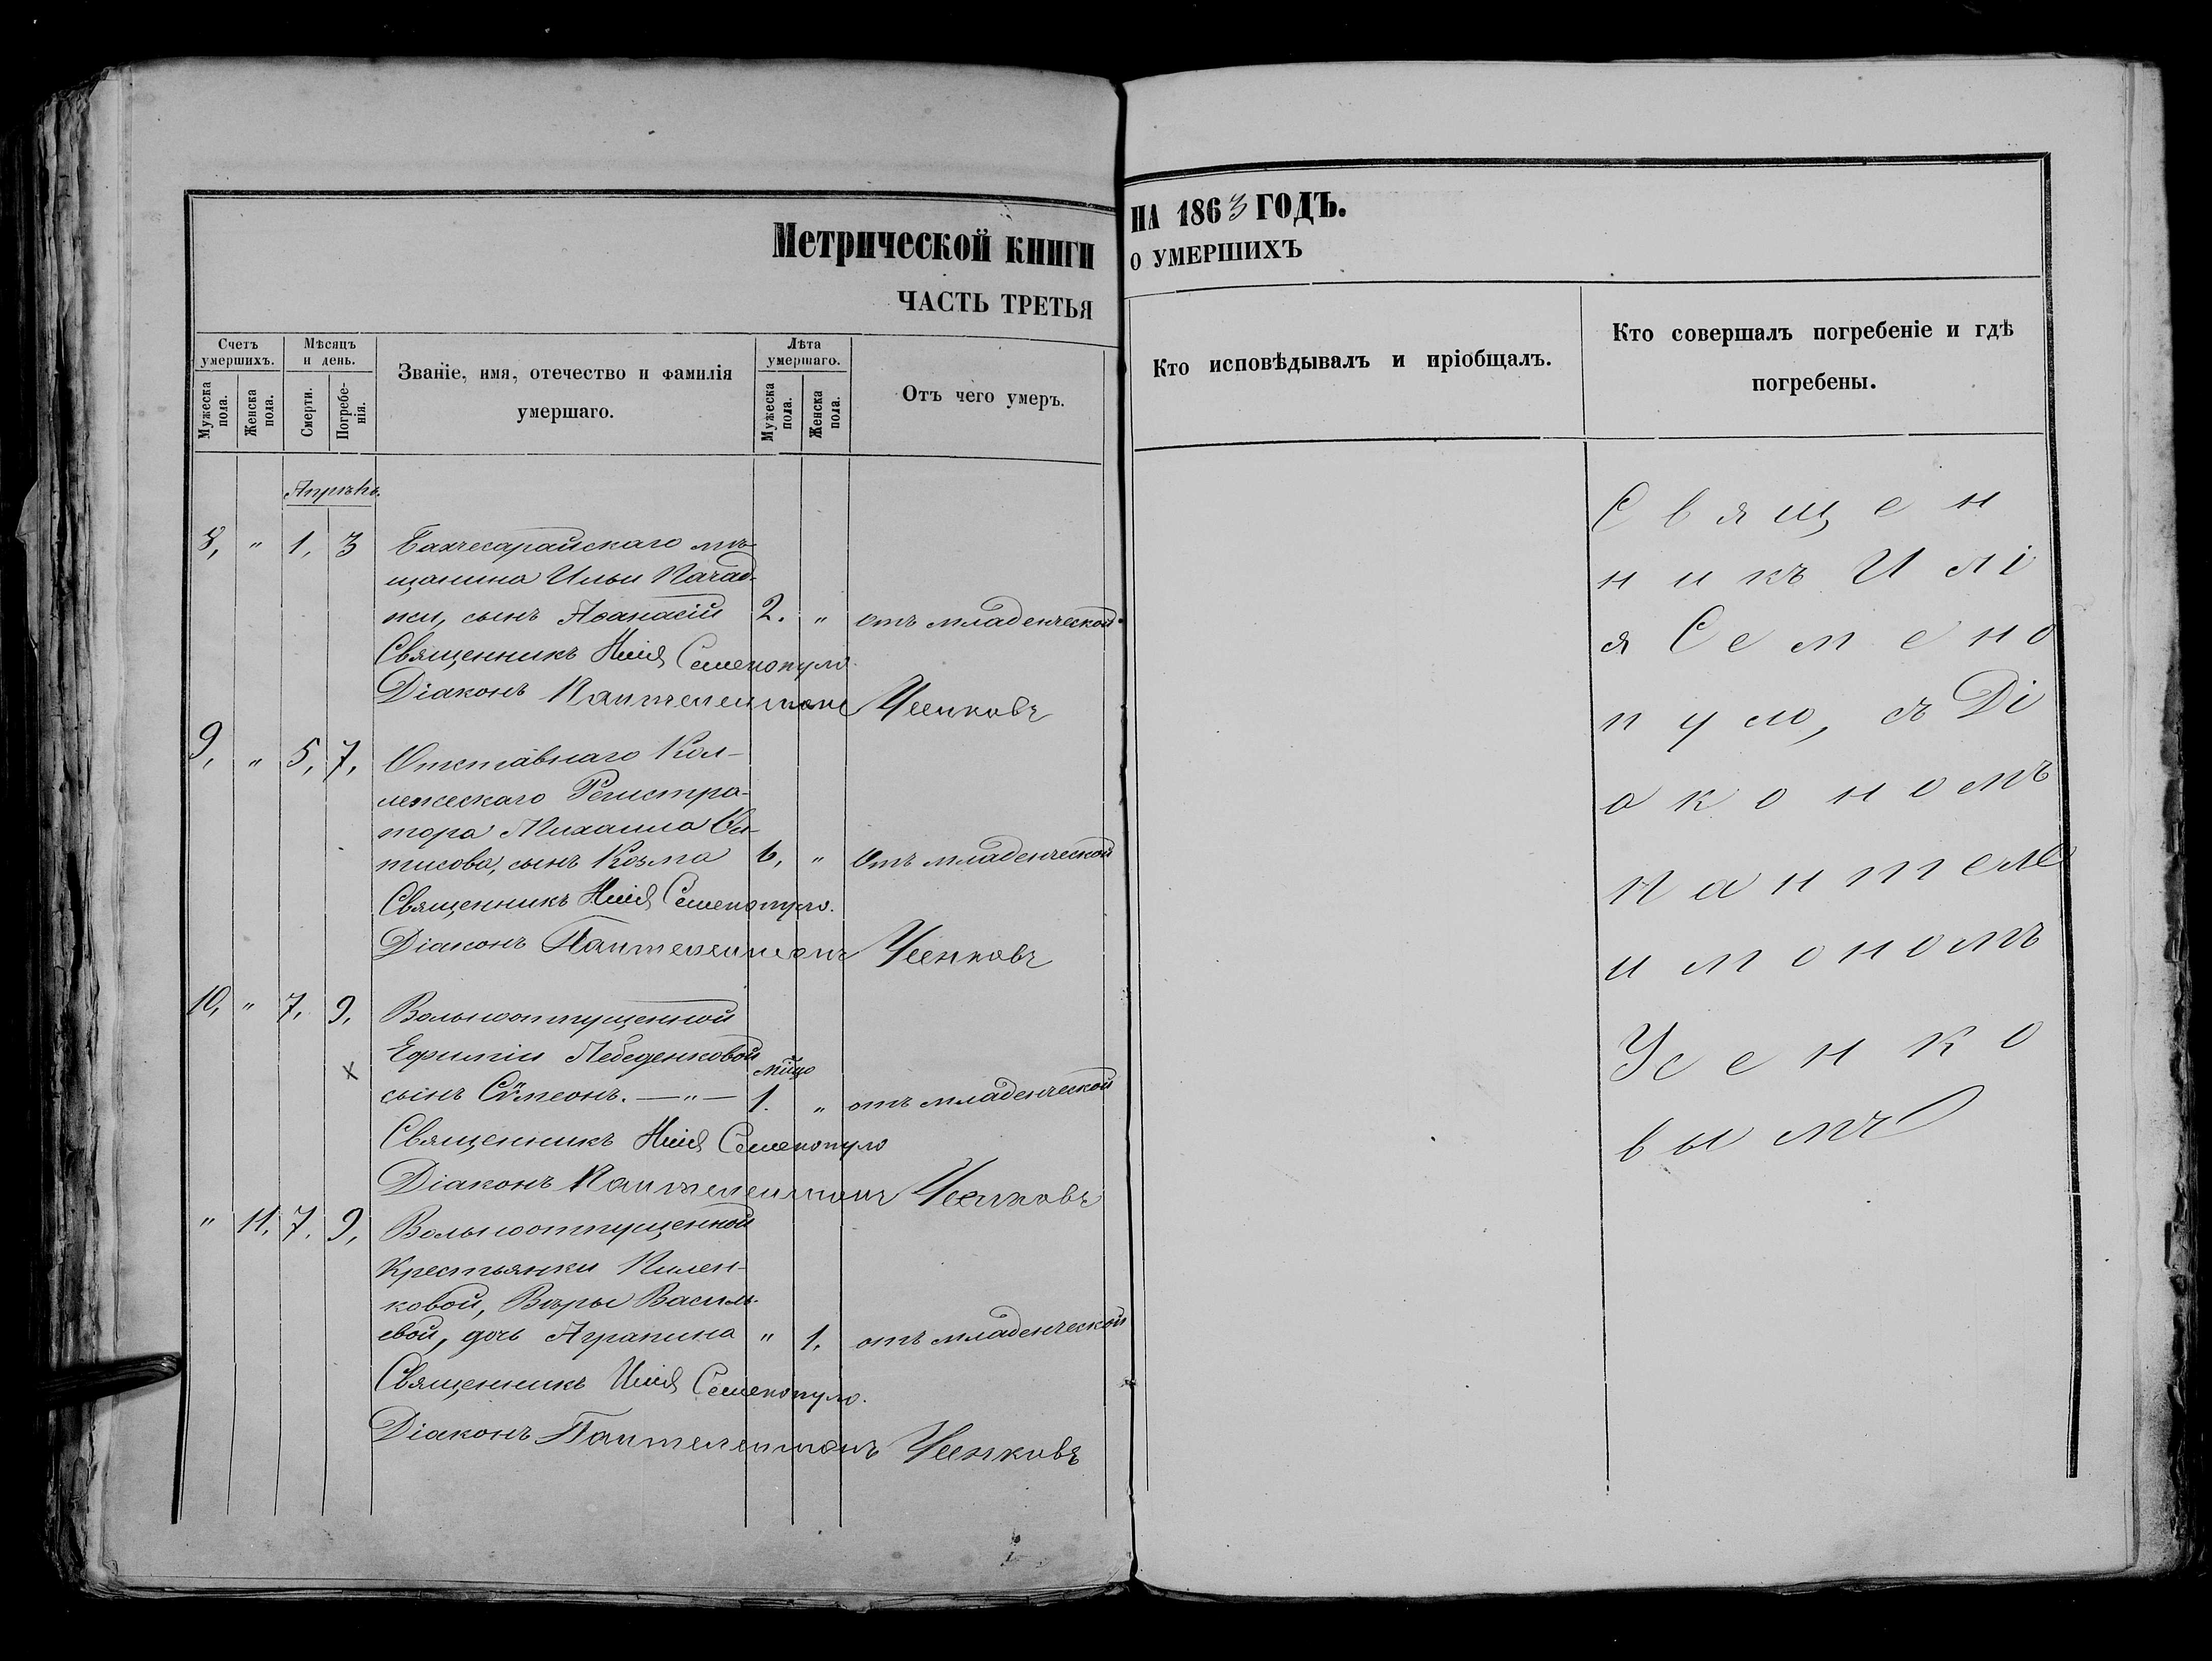 Метрической книги
ЧАСТЬ ТРЕТЬЯ
НА 1863 ГОДЪ.
О УМЕРШИХЪ
Счетъ умершихъ.
Мужеска пола.
Женска пола.
Мѣсяцъ и день.
Смерти.
Погребенія.
Званіе, имя, отечество и фамилія
умершаго.
Лѣта умершаго.
Мужеска пола.
Женска пола.
Отъ чего умеръ.
Кто исповѣдывалъ и пріобщалъ.
Кто совершалъ погребеніе и гдѣ
погребены.
Апрѣль.
8, " 1, 3 Бахчесарайскаго мѣ-
щанина Ильи
сынъ Аѳанасій 2. " отъ младенческой.
Священникъ Илія Семенопуло.
Діаконъ Пантелеимонъ Усенковъ
9, " 5, 7, Отставнаго Кол-
лежескаго Регистра-
тора Михаила
сынъ Козма 6, " Отъ младенческой
Священникъ Илія Семенопуло.
Діаконъ Пантелеимонъ Усенковъ
10, " 7, 9, Вольноотпущенной
Ефиміи Лебеденковой
сынъ Сѵмеонъ. — " — 1. " отъ младенческой
Священникъ Илія Семенопуло
Діаконъ Пантелеимонъ Усенковъ
" 11, 7, 9, Вольноотпущенной
Крестьянки Пилен-
ковой, Вѣры Василь-
евой, дочь Агрипина " 1, отъ младенческой
Священникъ Илія Семенопуло.
Діаконъ Пантелеимонъ Усенковъ
Священ
никъ Илі
я Семено
пуло, съ Ді
акономъ
Пантеле
имономъ
Усенко
вымъ